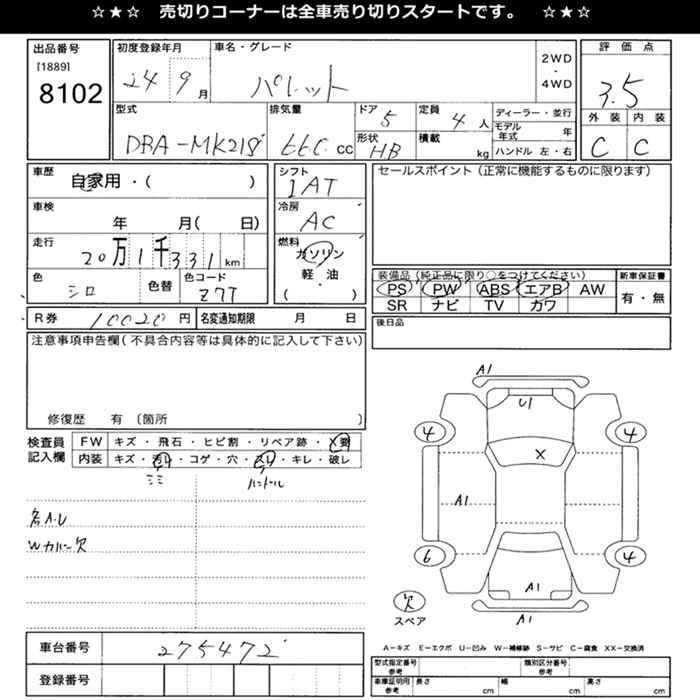 ☆★☆ 売切りコーナーは全車売り切りスタートです。 ☆★☆
出品番号
[1889]
8102
初度登録年月
24 9月
車名・グレード
パレット
2WD
・
4WD
評価点
3.5
外装 内装
C C
型式
DBA-MK21S
排気量
660 cc
ドア
5
形状
HB
定員
4人
積載
kg
ディーラー・並行
モデル年式 年
ハンドル 左・右
車歴
自家用・( )
車検
年 月( 日)
走行
20万1千331km
色
シロ
色替
色コード
Z7T
シフト
IAT
冷房
AC
燃料
ガソリン
軽・油
( )
セールスポイント(正常に機能するものに限ります)
装備品(純正品に限り○をつけてください)
PS PW ABS エアB AW
SR ナビ TV カワ
新車保証書
有・無
R券 10020円
名変通知期限 月 日
後日品
注意事項申告欄(不具合内容等は具体的に記入して下さい)
修復歴 有 〔箇所 〕
検査員記入欄
FW キズ・飛石・ヒビ割・リペア跡・X要
内装 キズ・汚レ・コゲ・穴・スレ・キレ・破レ
シミ
ハンドル
各A.U
Wカバー欠
A1
U1
4
4
X
A1
6
4
A1
A1
欠
スペア
車台番号
275472
登録番号
A−キズ E−エクボ U−凹み W−補修跡 S−サビ C−腐食 XX−交換済
型式指定番号
参考
類別区分番号
参考
車庫証明用
参考
長さ cm
幅 cm
高さ cm